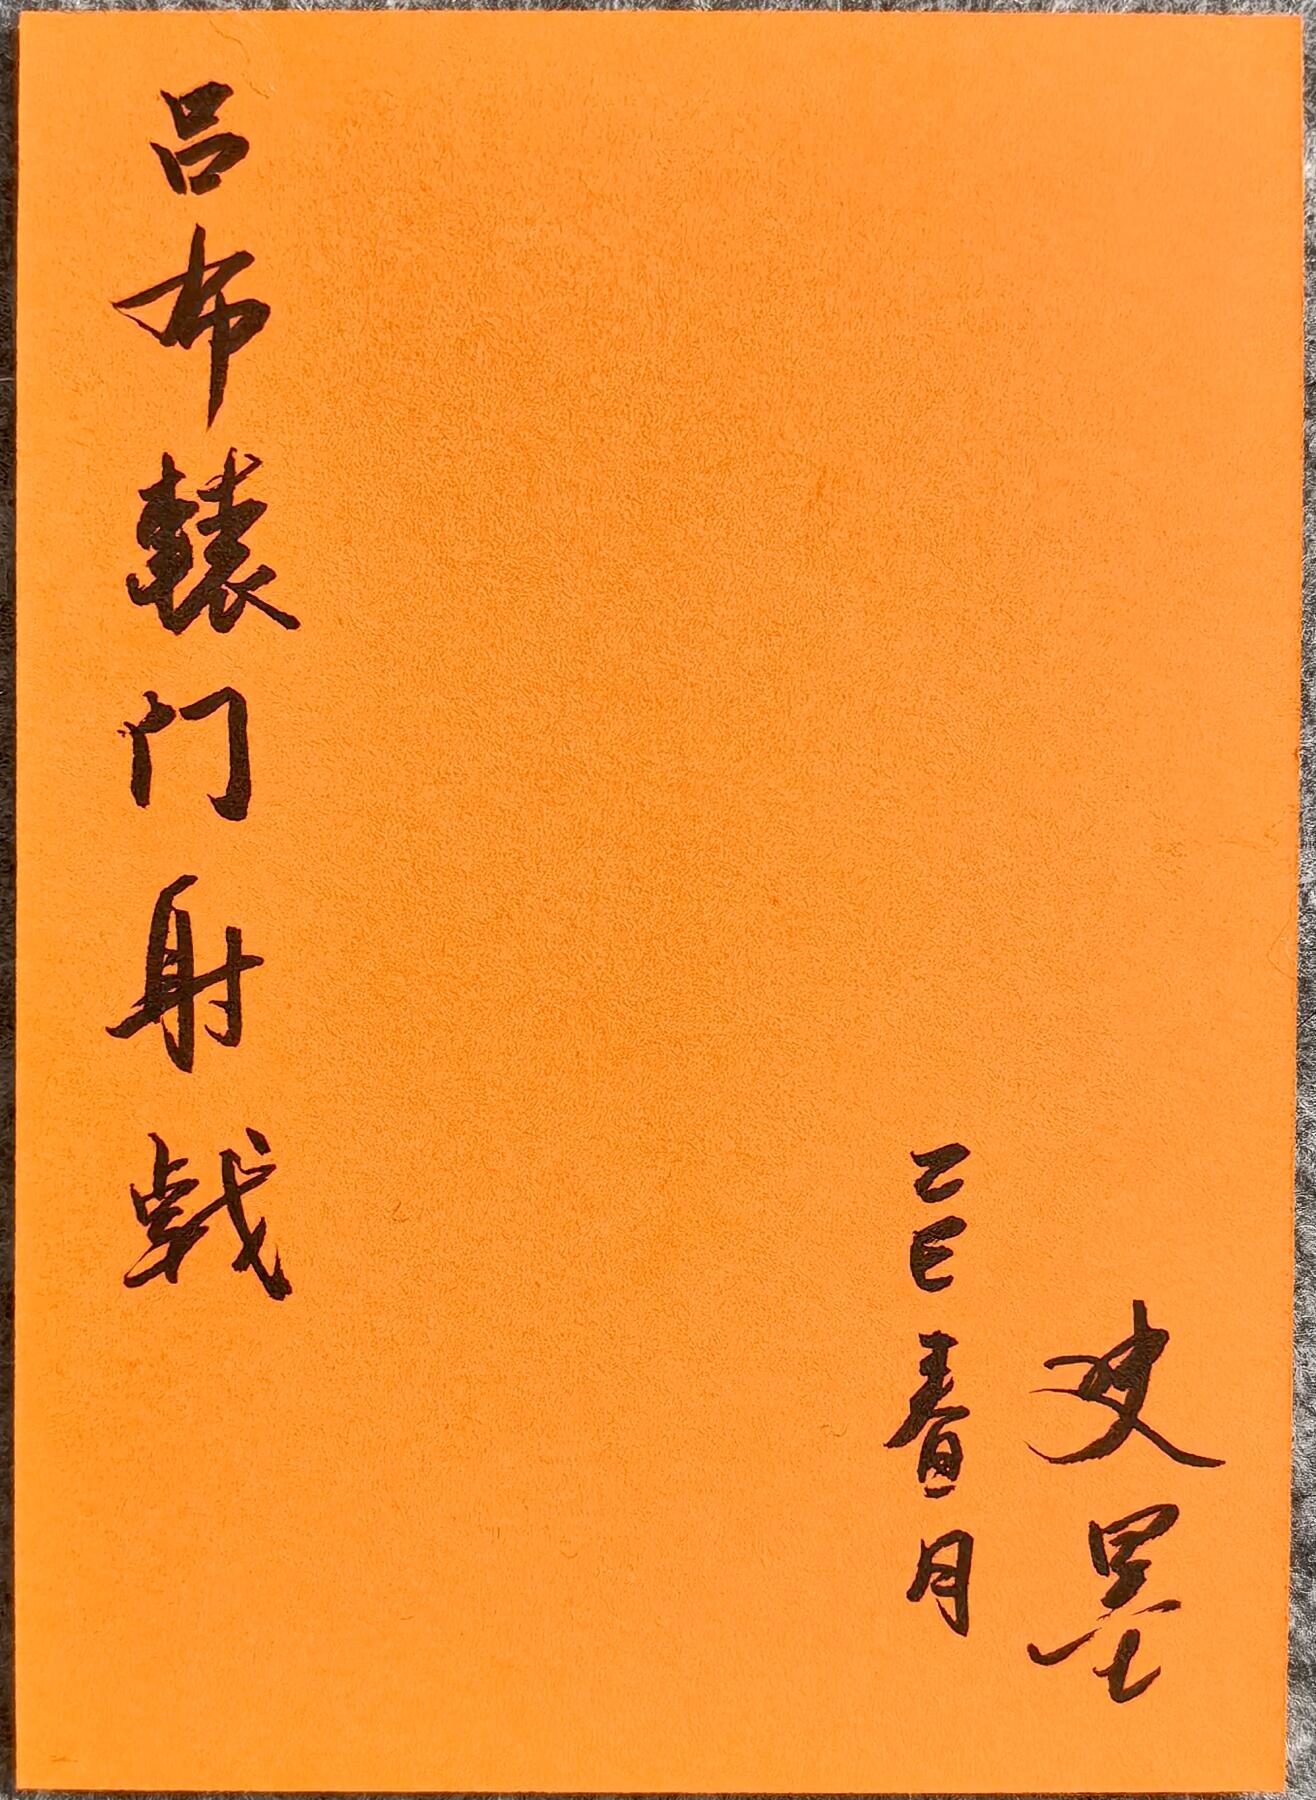 吕布辕门射戟
乙巳春月
史墨